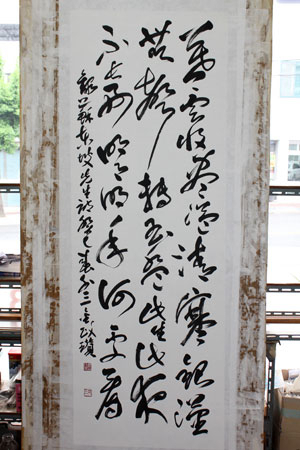 暮雲收盡溢清寒銀漢
無聲轉玉盤此生此夜
不長好明月明年何處看
錄蘇東坡先生詩